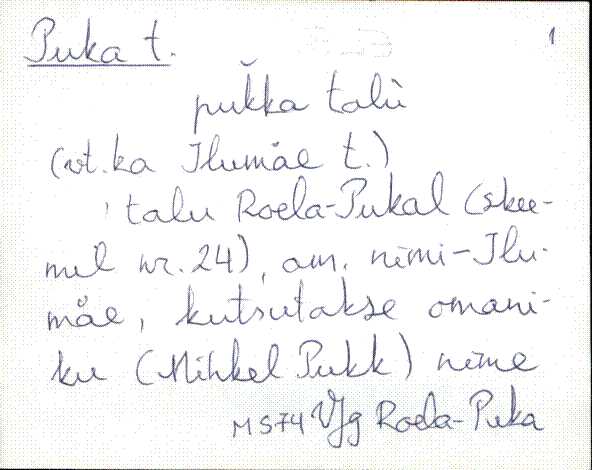 Puka t. 1
pukka talù
(vt. ka Ilumäe t.)
talu Roela-Pukal (skee-
mil nr. 24), am. nimi-Ilu-
mäe, kutsutakse omani-
ku (Mihkel Pukk) nime
MS74 VJg Roela-Puka